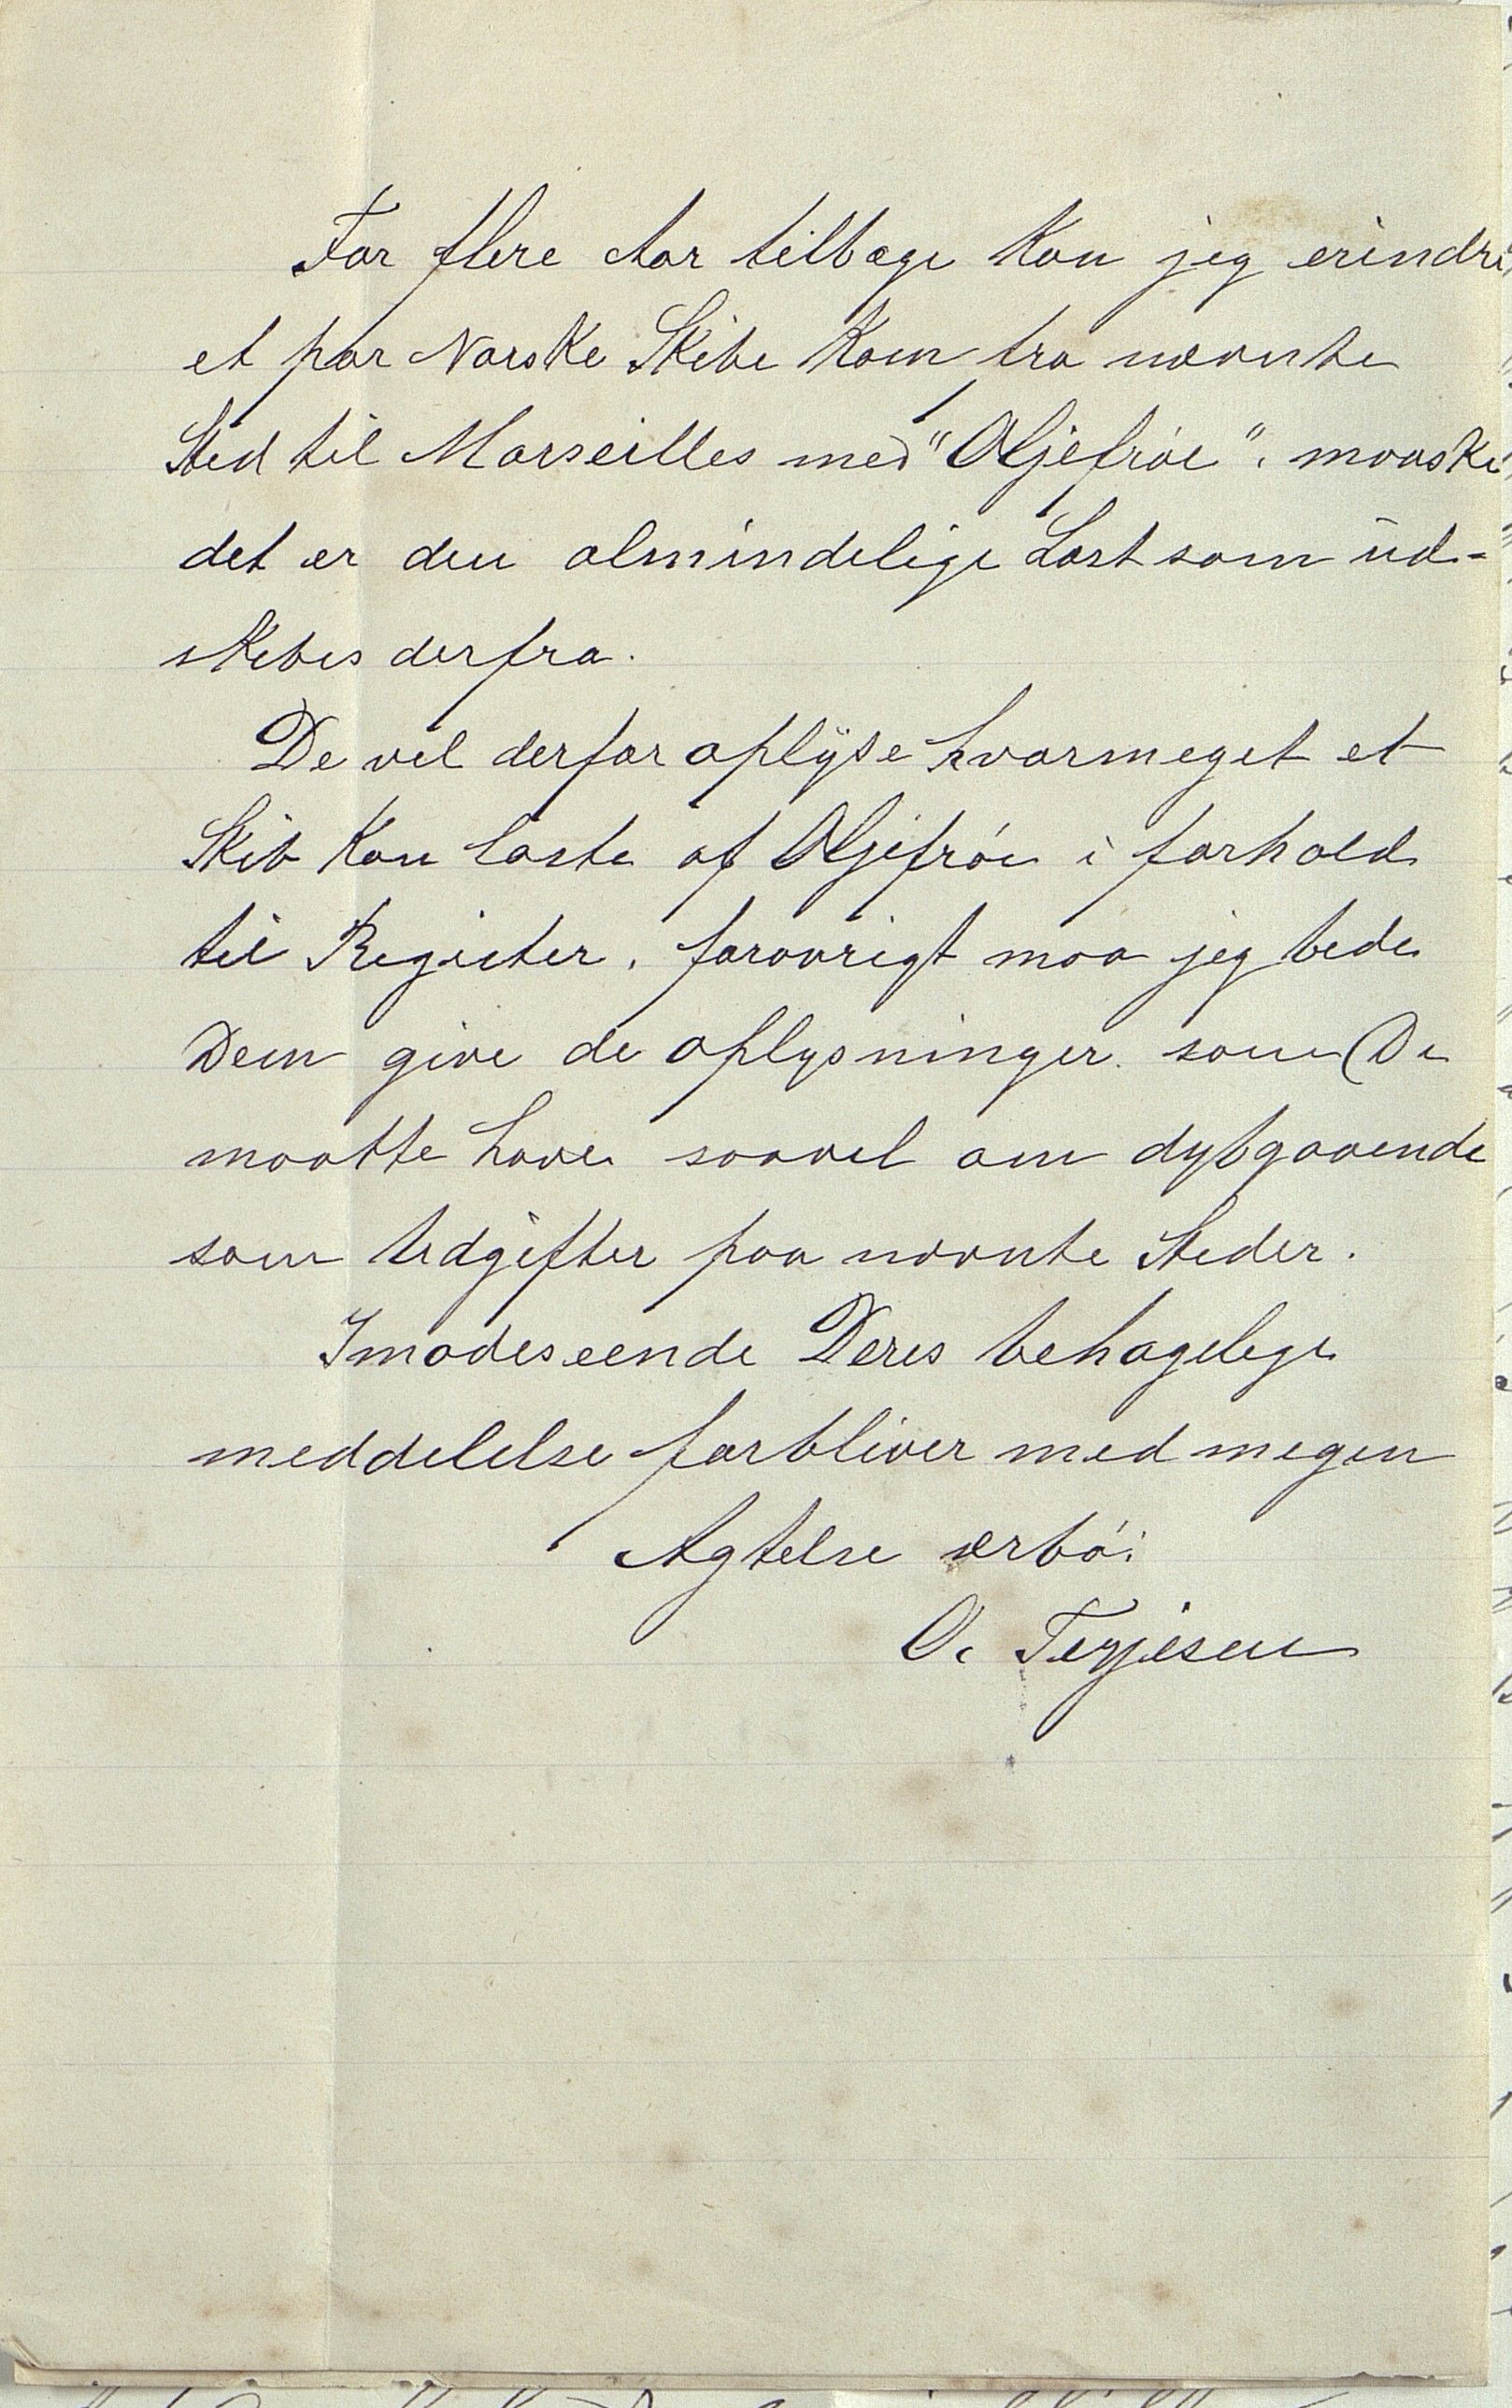 For flere Aar tilbage Kan jeg erindre
et par Norske Skibe Kom fra nævnte
Sted til Marseilles med "Oljefrøe", maaske
det er den almindelige Last som ud-
skibes derfra.
De vil derfor oplyse hvormeget et
Skib Kan laste af Oljefrøe i forhold
til Register, forøvrigt maa jeg bede
Dem give de oplysninger som De
maatte have saavel om dybgaaende
som Udgifter paa nævnte Steder.
Imødeseende Deres behagelige
meddelelse forbliver med megen
Agtelse ærbø:
O. Terjesen